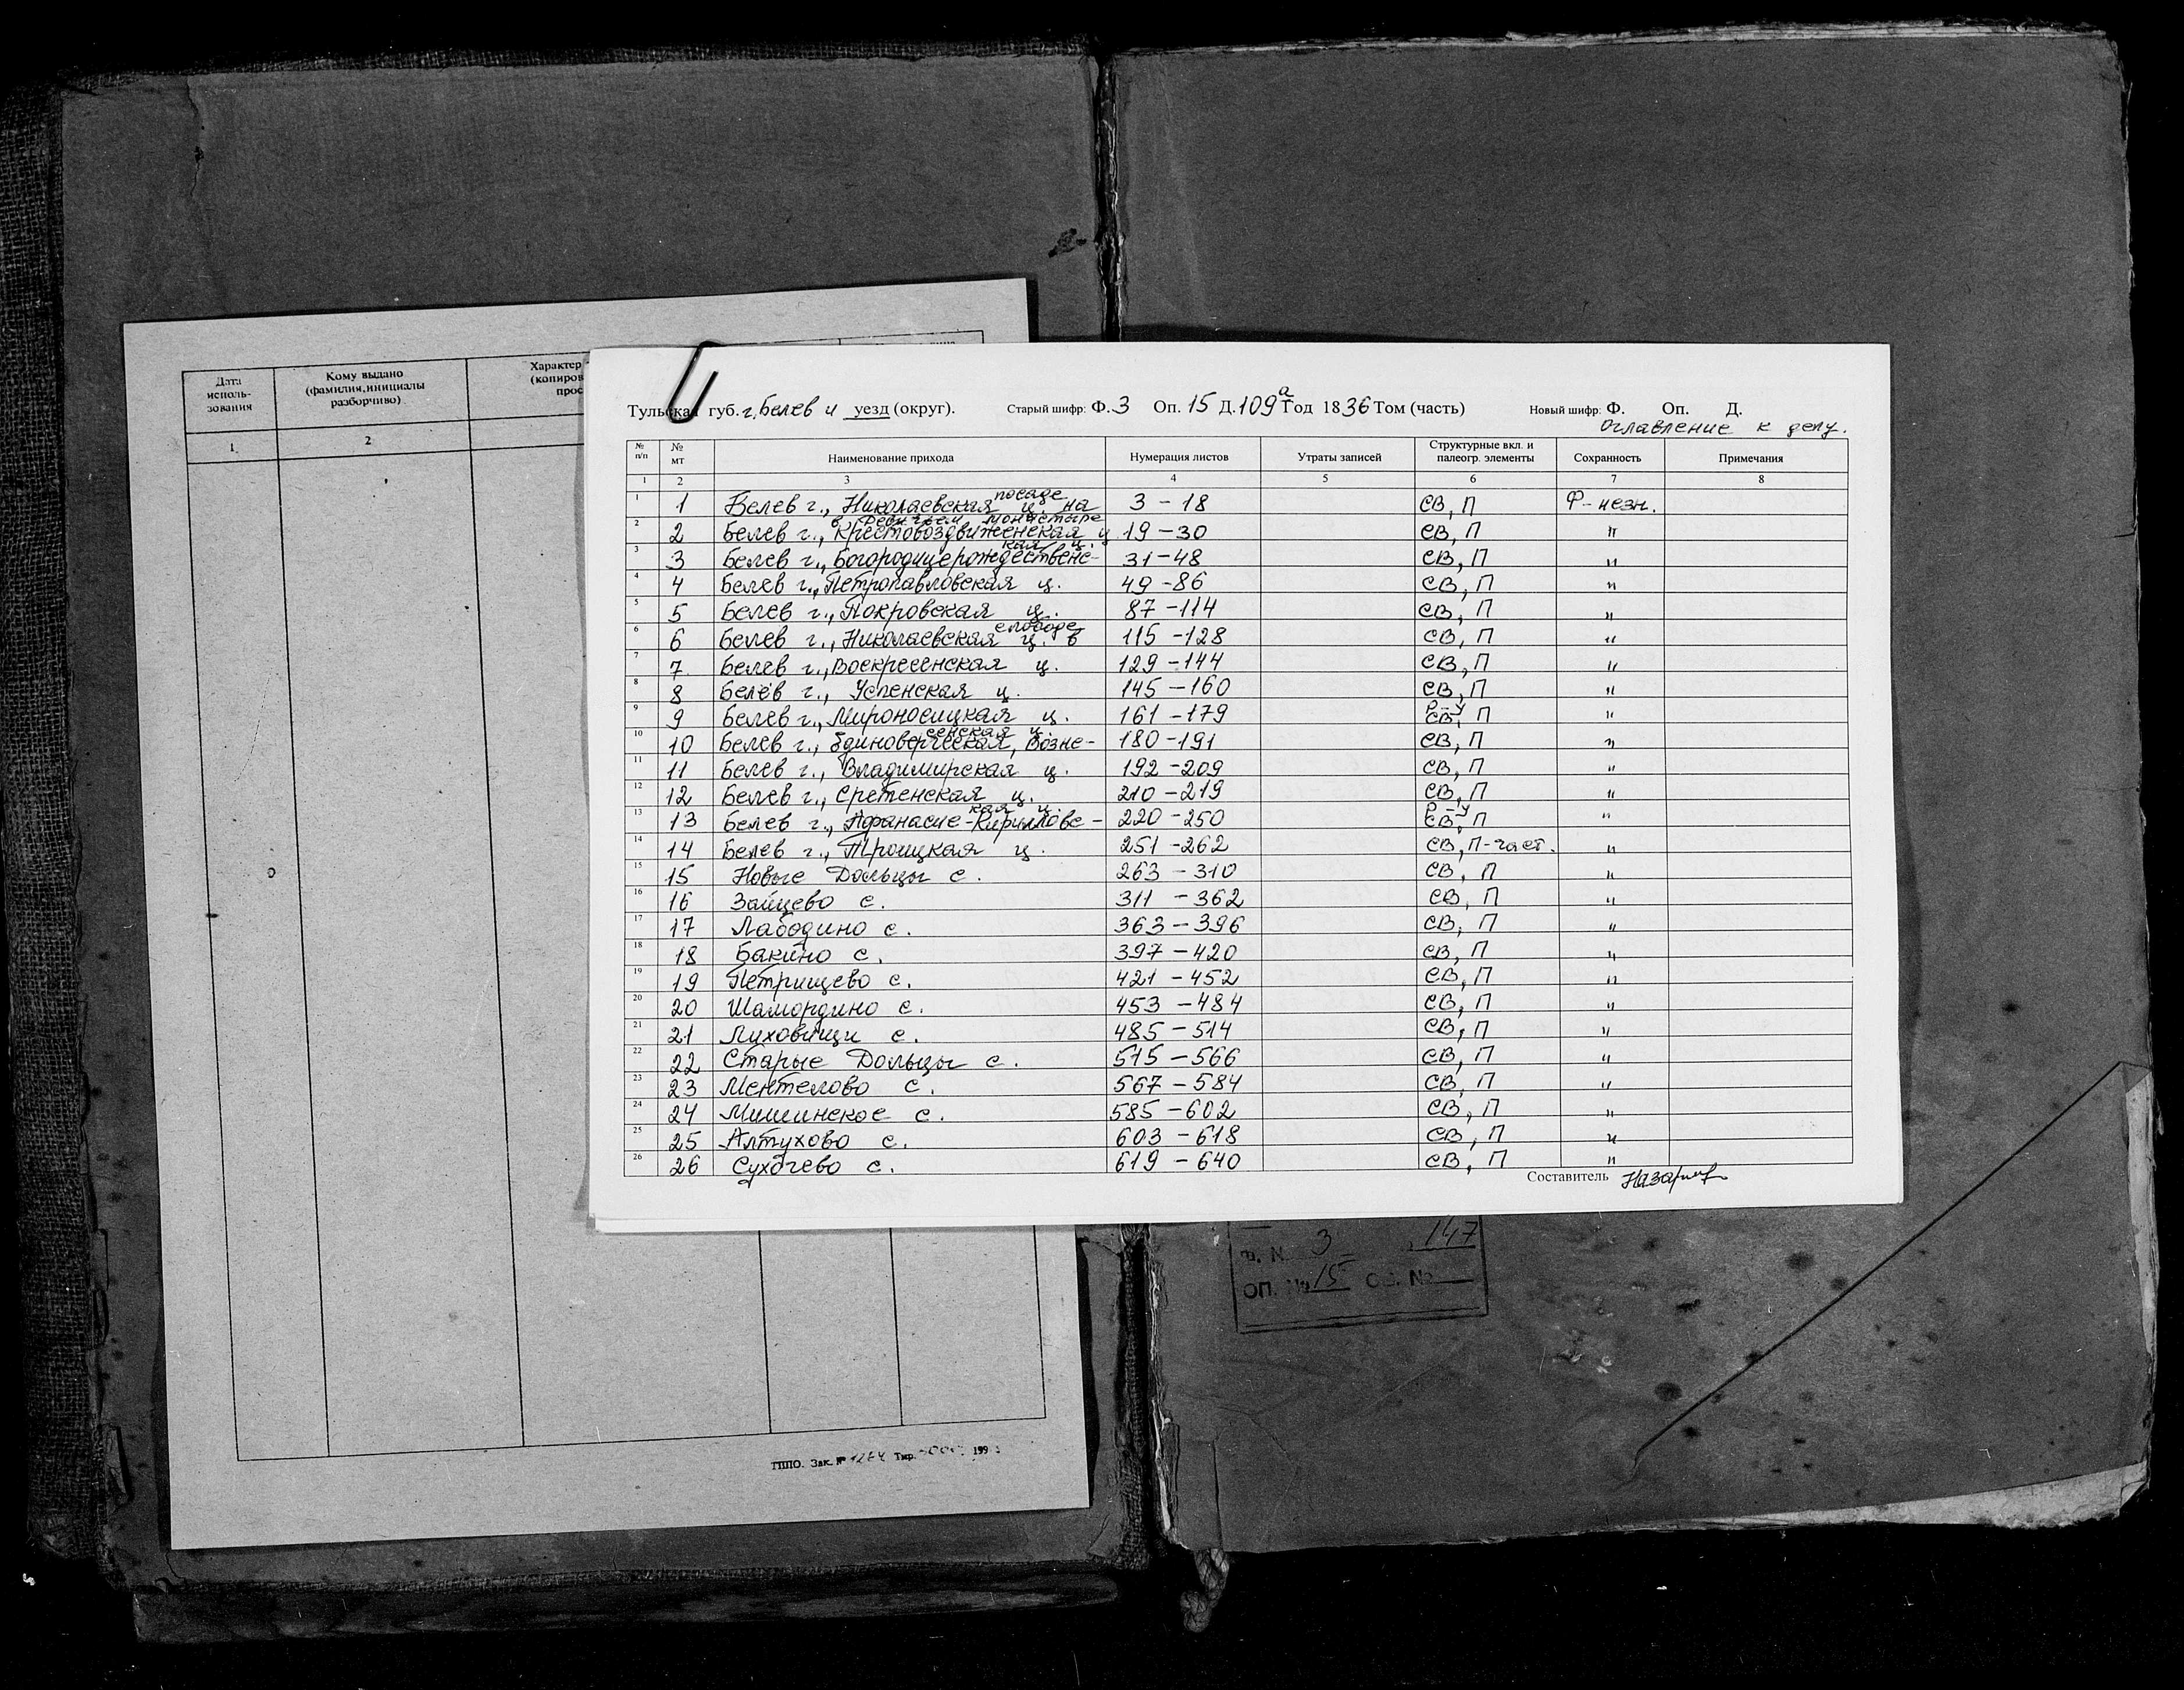 Дата исполь- зования
Кому выдано (фамилия, инициалы разборчиво)
Характер
(копиров
прос
1
2
Тульская губ. г. Белев и уезд (округ). Старый шифр: Ф. 3 Оп. 15 Д. 109а Год 1836 Том (часть) Новый шифр: Ф. Оп. Д.
Оглавление к делу.
№ п/п № мт Наименование прихода Нумерация листов Утраты записей Структурные вкл. и палеогр. элементы Сохранность Примечания
1 2 3 4 5 6 7 8
1 1 Белев г., Николаевская ц. на посаде 3 – 18 СВ, П Ф- незн.
2 2 Белев г., Крестовоздвиженская ц в Девичьем монастыре 19 – 30 СВ, П "
3 3 Белев г., Богородицерождественс- кая ц. 31 – 48 СВ, П "
4 4 Белев г., Петропавловская ц. 49 – 86 СВ, П "
5 5 Белев г., Покровская ц. 87 – 114 СВ, П "
6 6 Белев г., Николаевская ц. в слободе 115 – 128 СВ, П "
7 7 Белев г., Воскресенская ц. 129 – 144 СВ, П "
8 8 Белев г., Успенская ц. 145 – 160 СВ, П "
9 9 Белев г., Мироносицкая ц. 161 – 179 Р – У СВ, П "
10 10 Белев г., Единоверческая, Возне- сенская ц. 180 – 191 СВ, П "
11 11 Белев г., Владимирская ц. 192 – 209 СВ, П "
12 12 Белев г., Сретенская ц. 210 – 219 СВ, П "
13 13 Белев г., Афанасие-Кирилловс- кая ц. 220 – 250 Р – У СВ, П "
14 14 Белев г., Троицкая ц. 251 – 262 СВ, П-част. "
15 15 Новые Дольцы с. 263 – 310 СВ, П "
16 16 Зайцево с. 311 – 362 СВ, П "
17 17 Лабодино с. 363 – 396 СВ, П "
18 18 Бакино с. 397 – 420 СВ, П "
19 19 Петрищево с. 421 – 452 СВ, П "
20 20 Шамордино с. 453 – 484 СВ, П "
21 21 Лиховищи с. 485 – 514 СВ, П "
22 22 Старые Дольцы с. 515 – 566 СВ, П "
23 23 Ментелово с. 567 – 584 СВ, П "
24 24 Мишинское с. 585 – 602 СВ, П "
25 25 Алтухово с. 603 – 618 СВ, П "
26 26 Сухочево с. 619 – 640 СВ, П "
Составитель
3 147
ОП. № 15
ГППО. Зак. № Тир. 199